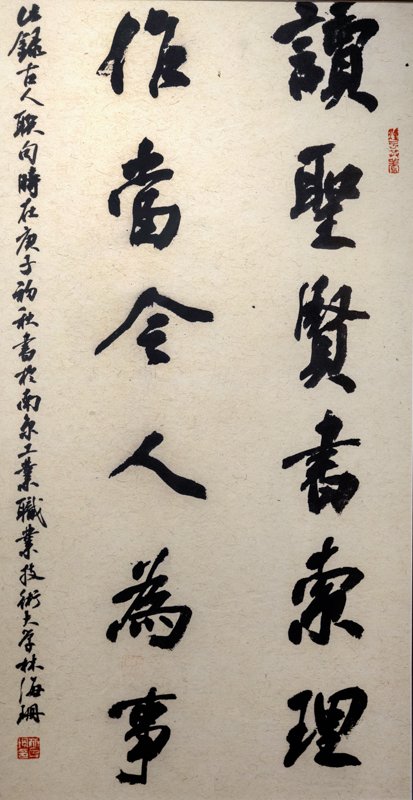 讀聖賢書索理
作當今人為事
此録古人联句時在庚子初秋書於南京工業職業技術大学林海珊